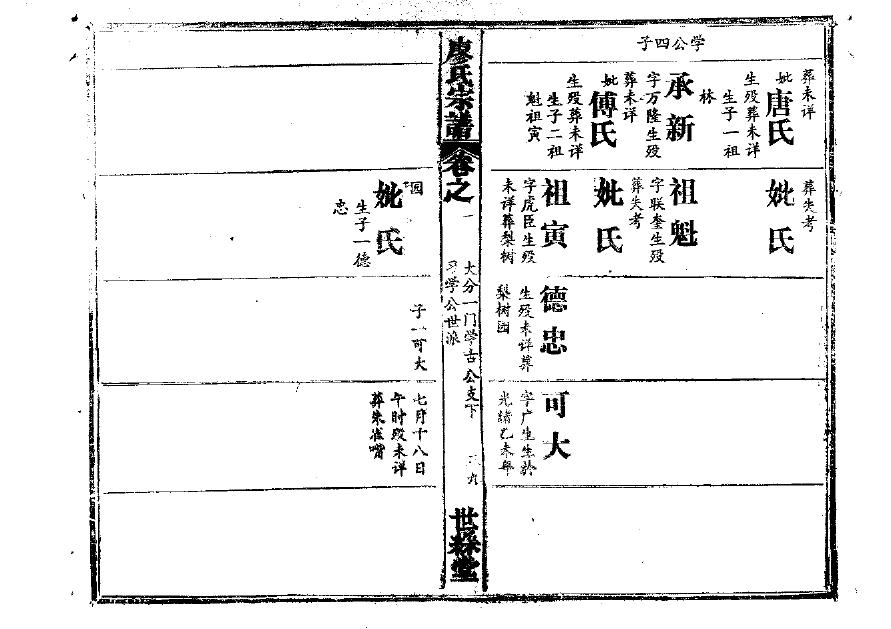 学公四子
葬未详
妣唐氏
生殁葬未详
生子一祖
林
承新
字万隆生殁
葬未详
妣傅氏
生殁葬未详
生子二祖
魁祖寅
葬失考
妣氏
祖魁
字联奎生殁
葬失考
妣氏
祖寅
字虎臣生殁
未详葬梨树
德忠
生殁未详葬
梨树园
可大
字广生生於
光绪乙未年
廖氏宗谱
卷之一
大分一门学古公支下
学公世派
世䌽堂
园
妣氏
生子一德
忠
子一可大
七月十八日
午时殁未详
葬朱雀嘴